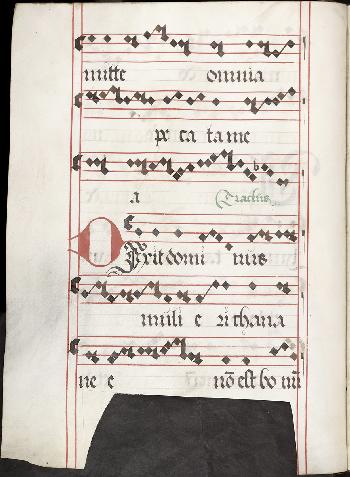 mitte omnia
pe ca ta me
a Tractus
Dixit domi nus
muli e ri chana
ne e nō est bo nū